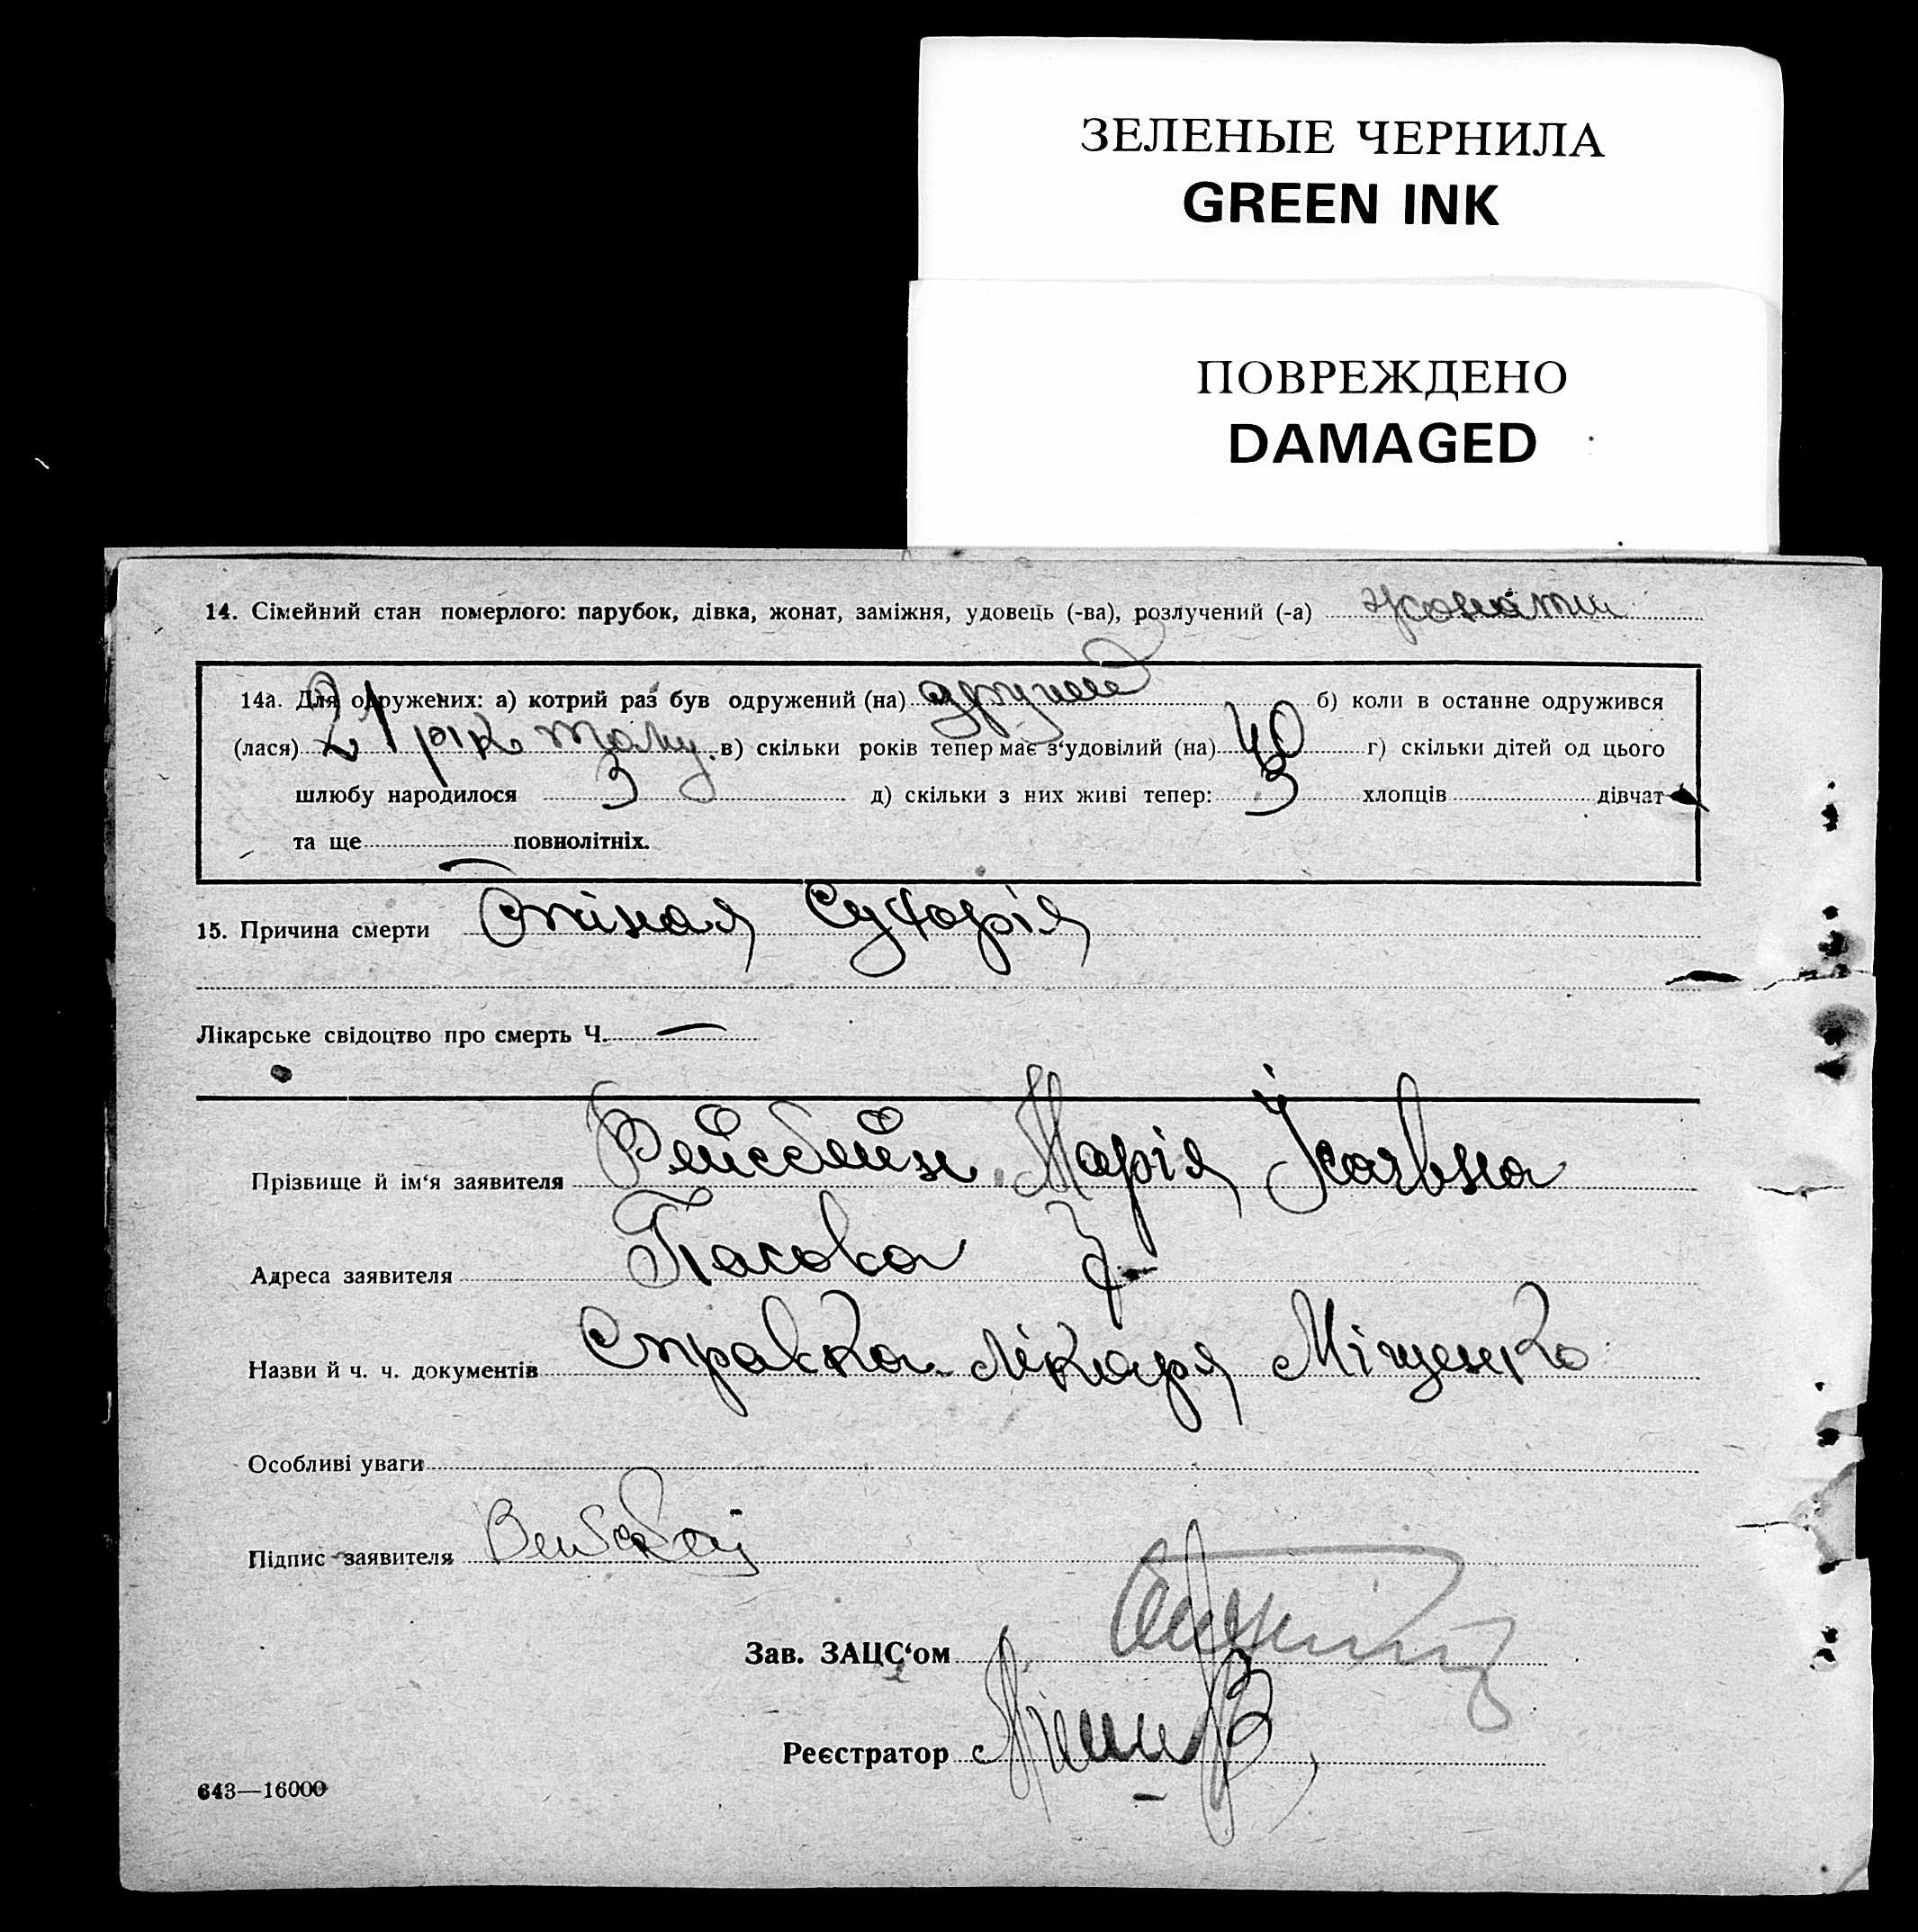 ЗЕЛЕНЫЕ ЧЕРНИЛА
GREEN INK
ПОВРЕЖДЕНО
DAMAGED
14. Сімейний стан померлого: парубок, дівка, жонат, заміжня, удовець (-ва), розлучений (-а) жонатий
14а. Для одружених: а) котрий раз був одружений (на) другий б) коли в останнє одружився
(лася) 21 рік тому в) скільки років тепер має з‘удовілий (на) 40 г) скільки дітей од цього
шлюбу народилося 3 д) скільки з них живі тепер: 3 хлопців дівчат
та ще повнолітніх.
15. Причина смерти
Лікарське свідоцтво про смерть Ч. —
Прізвище й ім‘я заявителя Марія Ісаівна
Адреса заявителя 7
Назви й ч. ч. документів Справка лікаря Міщенко
Особливі уваги
Підпис заявителя
Зав. ЗАЦС‘ом
Реєстратор
643—16000